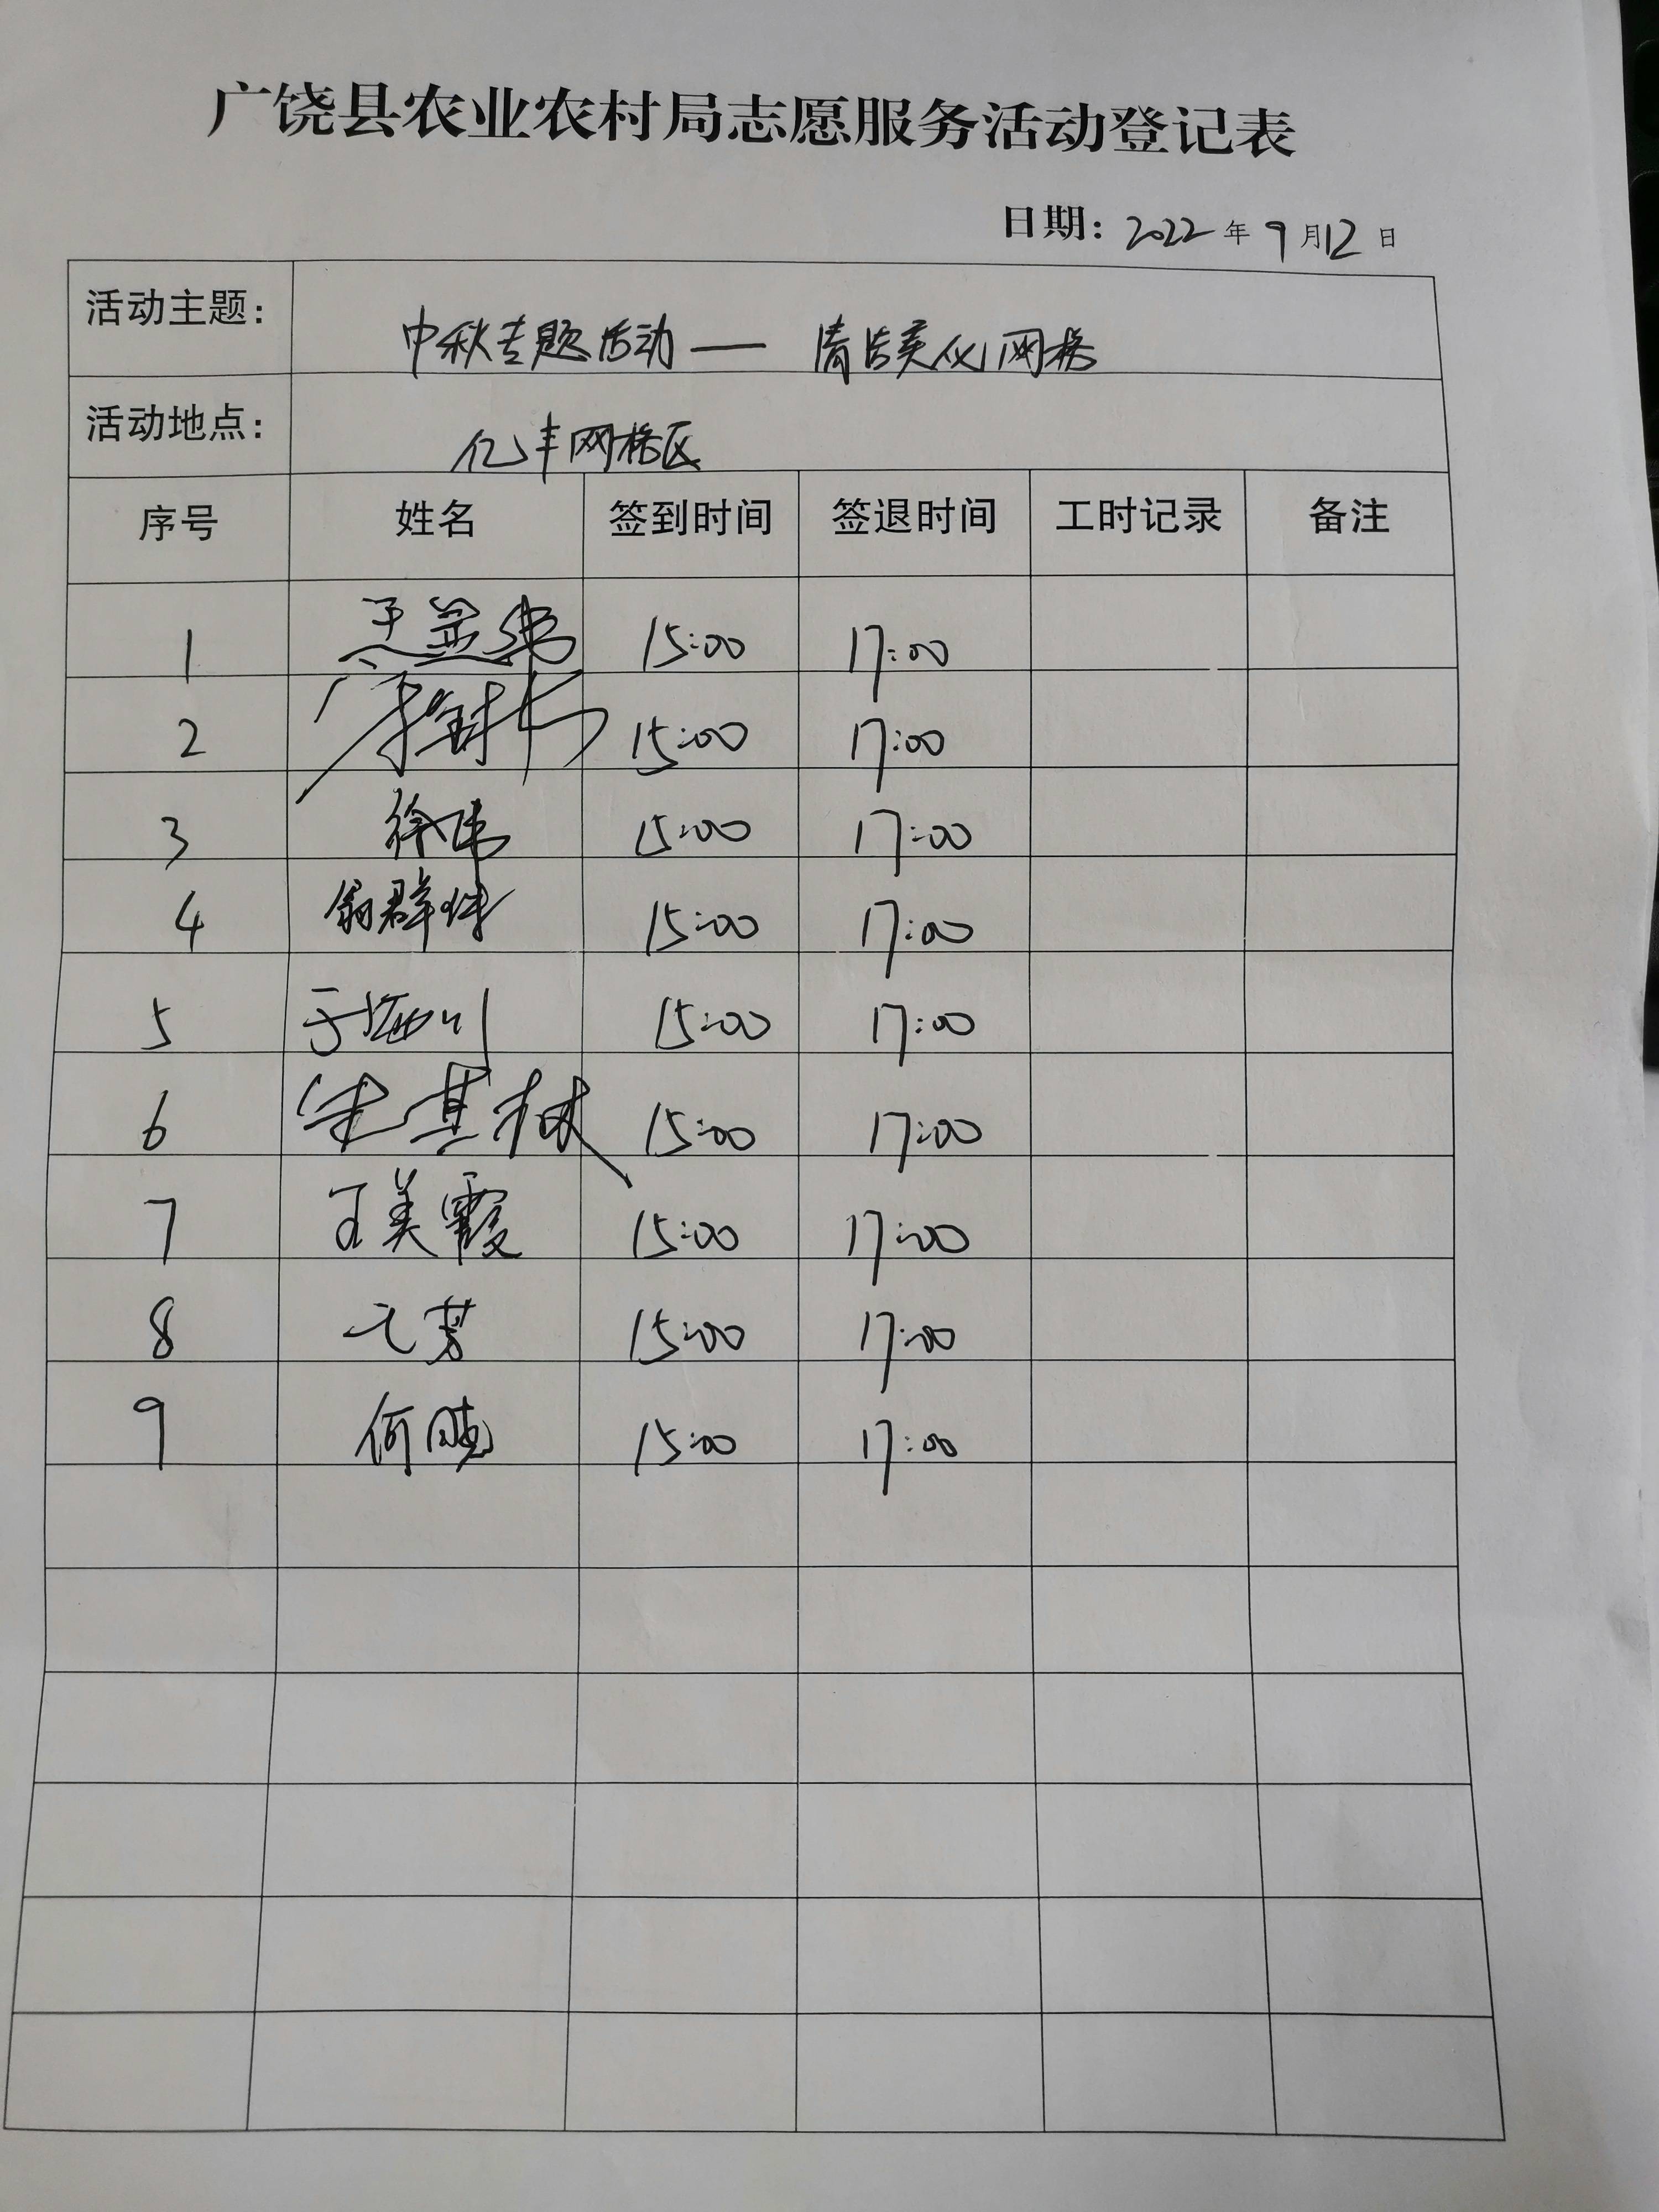 广饶县农业农村局志愿服务活动登记表
日期: 2022 年 9 月 12 日
活动主题: 中秋专题活动——清洁美化网格
活动地点: 亿丰网格区
序号 姓名 签到时间 签退时间 工时记录 备注
1 15:00 17:00
2 15:00 17:00
3 徐伟 15:00 17:00
4 翁群 15:00 17:00
5 于 川 15:00 17:00
6 宋其林 15:00 17:00
7 王美霞 15:00 17:00
8 芳 15:00 17:00
9 何晓 15:00 17:00